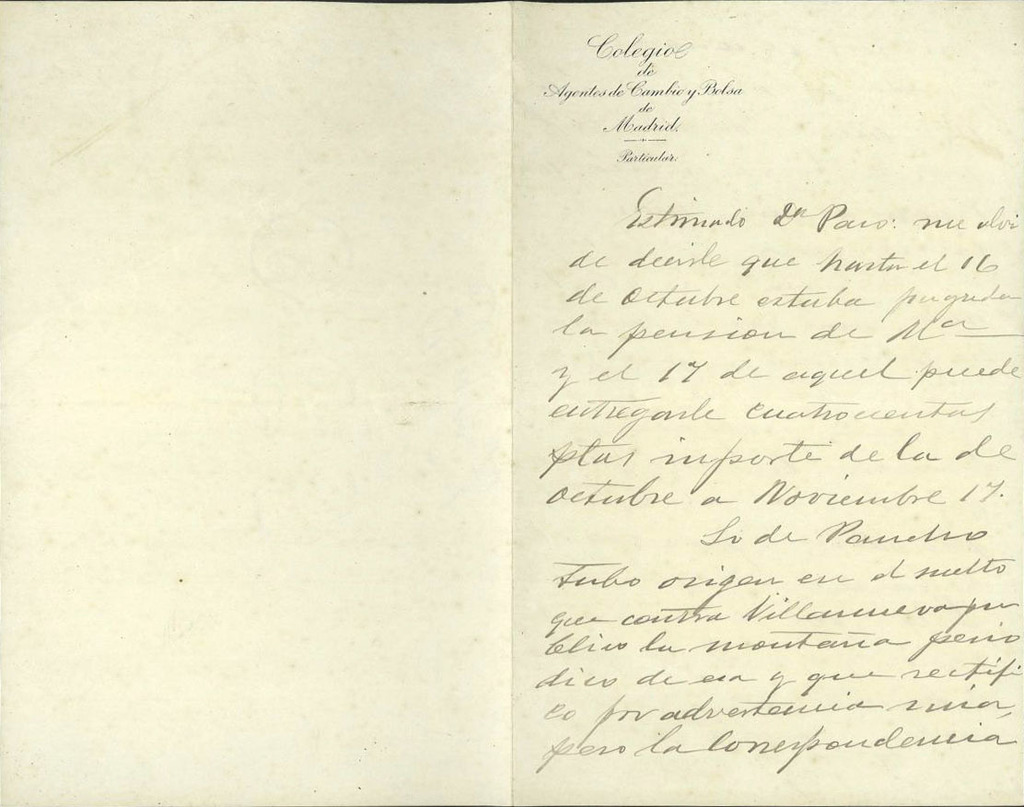 Colegio
de
Agentes de Cambio y Bolsa
de
Madrid.
Particular.
Estimado Dn Paco: me olvi
de decirle que hasta el 16
de Octubre estaba pagada
la pension de Ma
y el 17 de aquel puede
entregarle cuatrocientas
ptas importe de la de
octubre a Noviembre 17.
Lo de Pancho
tubo origen en el suelto
que contra Villanueva pu
blico la montaña perio
dico de esa y que rectifi
co por advertencia mia,
pero la Correspondencia